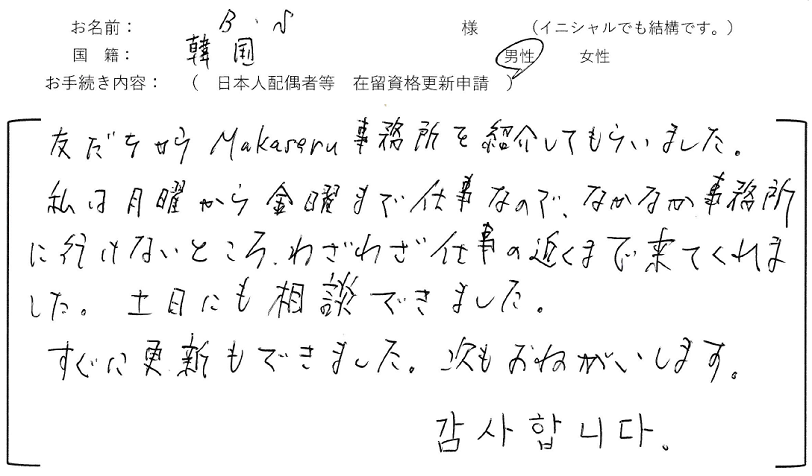 お名前： B・S 様 （イニシャルでも結構です。）
国 籍： 韓国 男性 女性
お手続き内容： （ 日本人配偶者等 在留資格更新申請 ）
友だちから Makaseru 事務所を紹介してもらいました。
私は月曜から金曜まで仕事なので、なかなか事務所
に行けないところ、わざわざ仕事の近くまで来てくれま
した。土日にも相談できました。
すぐに更新もできました。次もおねがいします。
감사합니다.